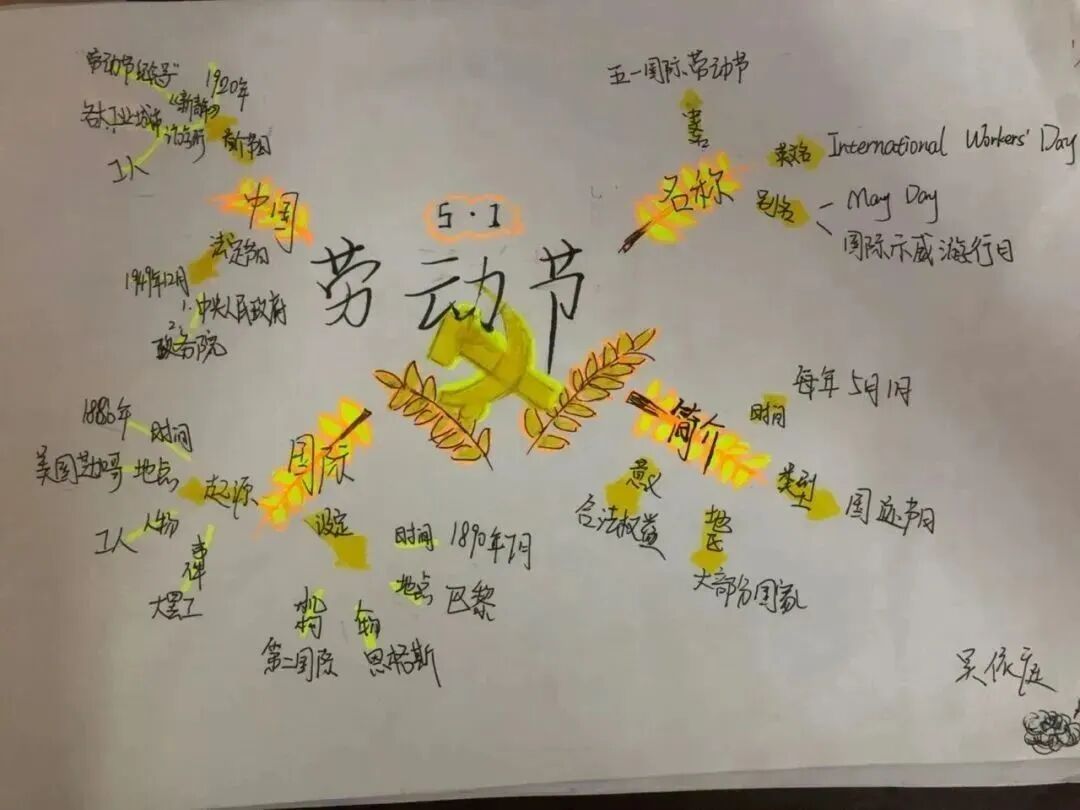 5·1
劳动节
名称
全名
五一国际劳动节
英文名
International Workers' Day
别名
May Day
国际示威游行日
简介
时间
每年5月1日
类型
国际节日
地区
大部分国家
意义
合法权益
国际
起源
时间
1886年
地点
美国芝加哥
人物
工人
事件
大罢工
设定
时间
1890年7月
地点
巴黎
人物
恩格斯
机构
第二国际
中国
1920年
首个节日
《新青年》
劳动节纪念号
各大工业城市
工人
法定节日
1949年12月
1.中央人民政府
2.
政务院
吴依庭